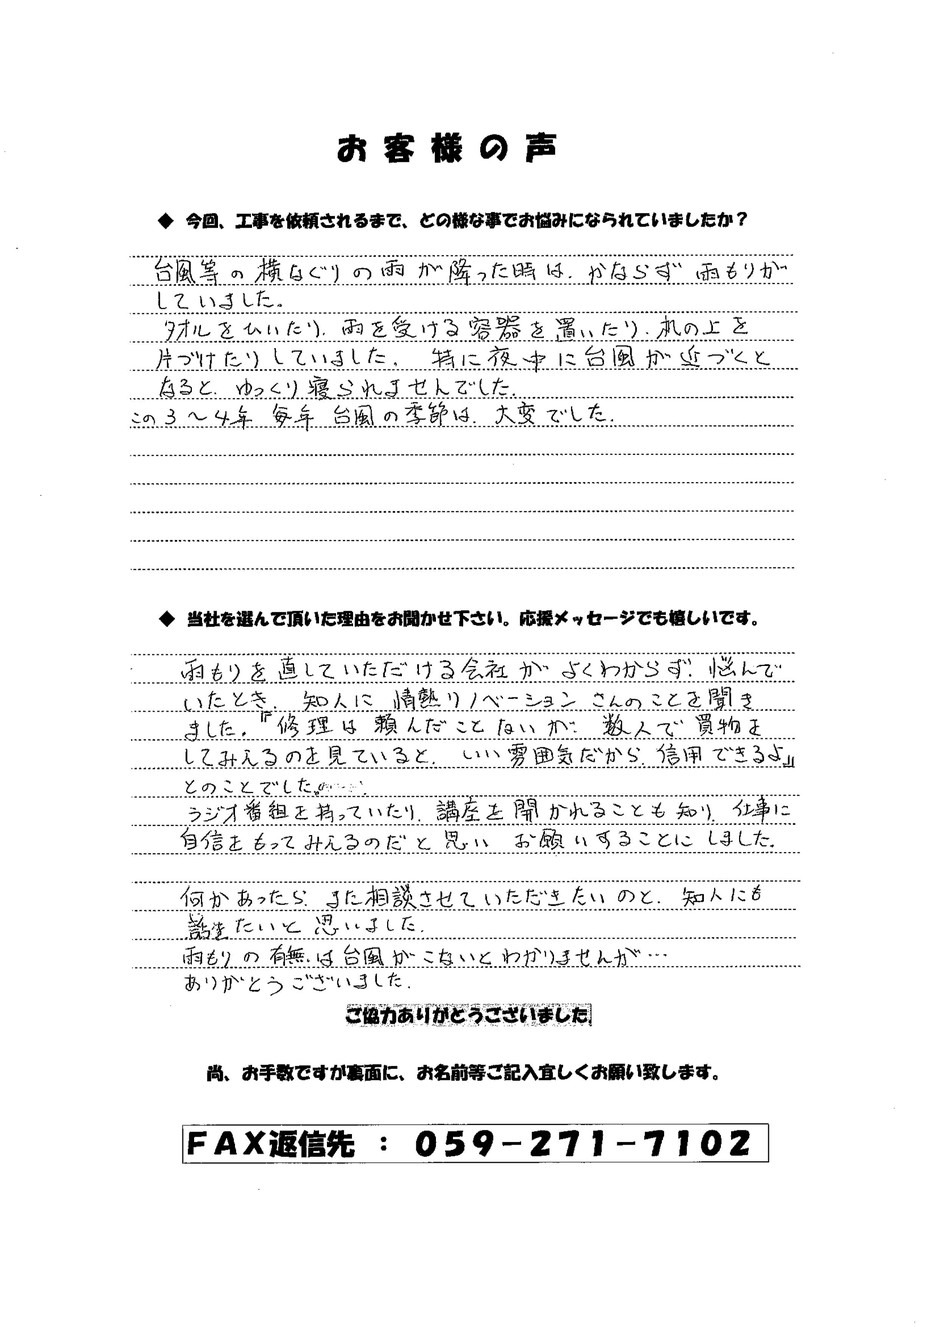 お客様の声
◆ 今回、工事を依頼されるまで、どの様な事でお悩みになられていましたか？
台風等の横なぐりの雨が降った時は、かならず雨もりが
していました。
タオルをひいたり、雨を受ける容器を置いたり、机の上を
片づけたりしていました。特に夜中に台風が近づくと
なると、ゆっくり寝られませんでした。
この3〜4年 毎年 台風の季節は、大変でした。
◆ 当社を選んで頂いた理由をお聞かせ下さい。応援メッセージでも嬉しいです。
雨もりを直していただける会社がよくわからず、悩んで
いたとき、知人に情熱リノベーションさんのことを聞き
ました。『修理は頼んだことないが、数人で買物を
してみえるのを見ていると、いい雰囲気だから、信用できるよ』
とのことでした。
ラジオ番組を持っていたり、講座を開かれることも知り、仕事に
自信をもってみえるのだと思い お願いすることにしました。
何かあったら、また相談させていただきたいのと、知人にも
話をしたいと思いました。
雨もりの有無は台風がこないとわかりませんが…
ありがとうございました。
ご協力ありがとうございました
尚、お手数ですが裏面に、お名前等ご記入宜しくお願い致します。
FAX返信先 ： 059−271−7102